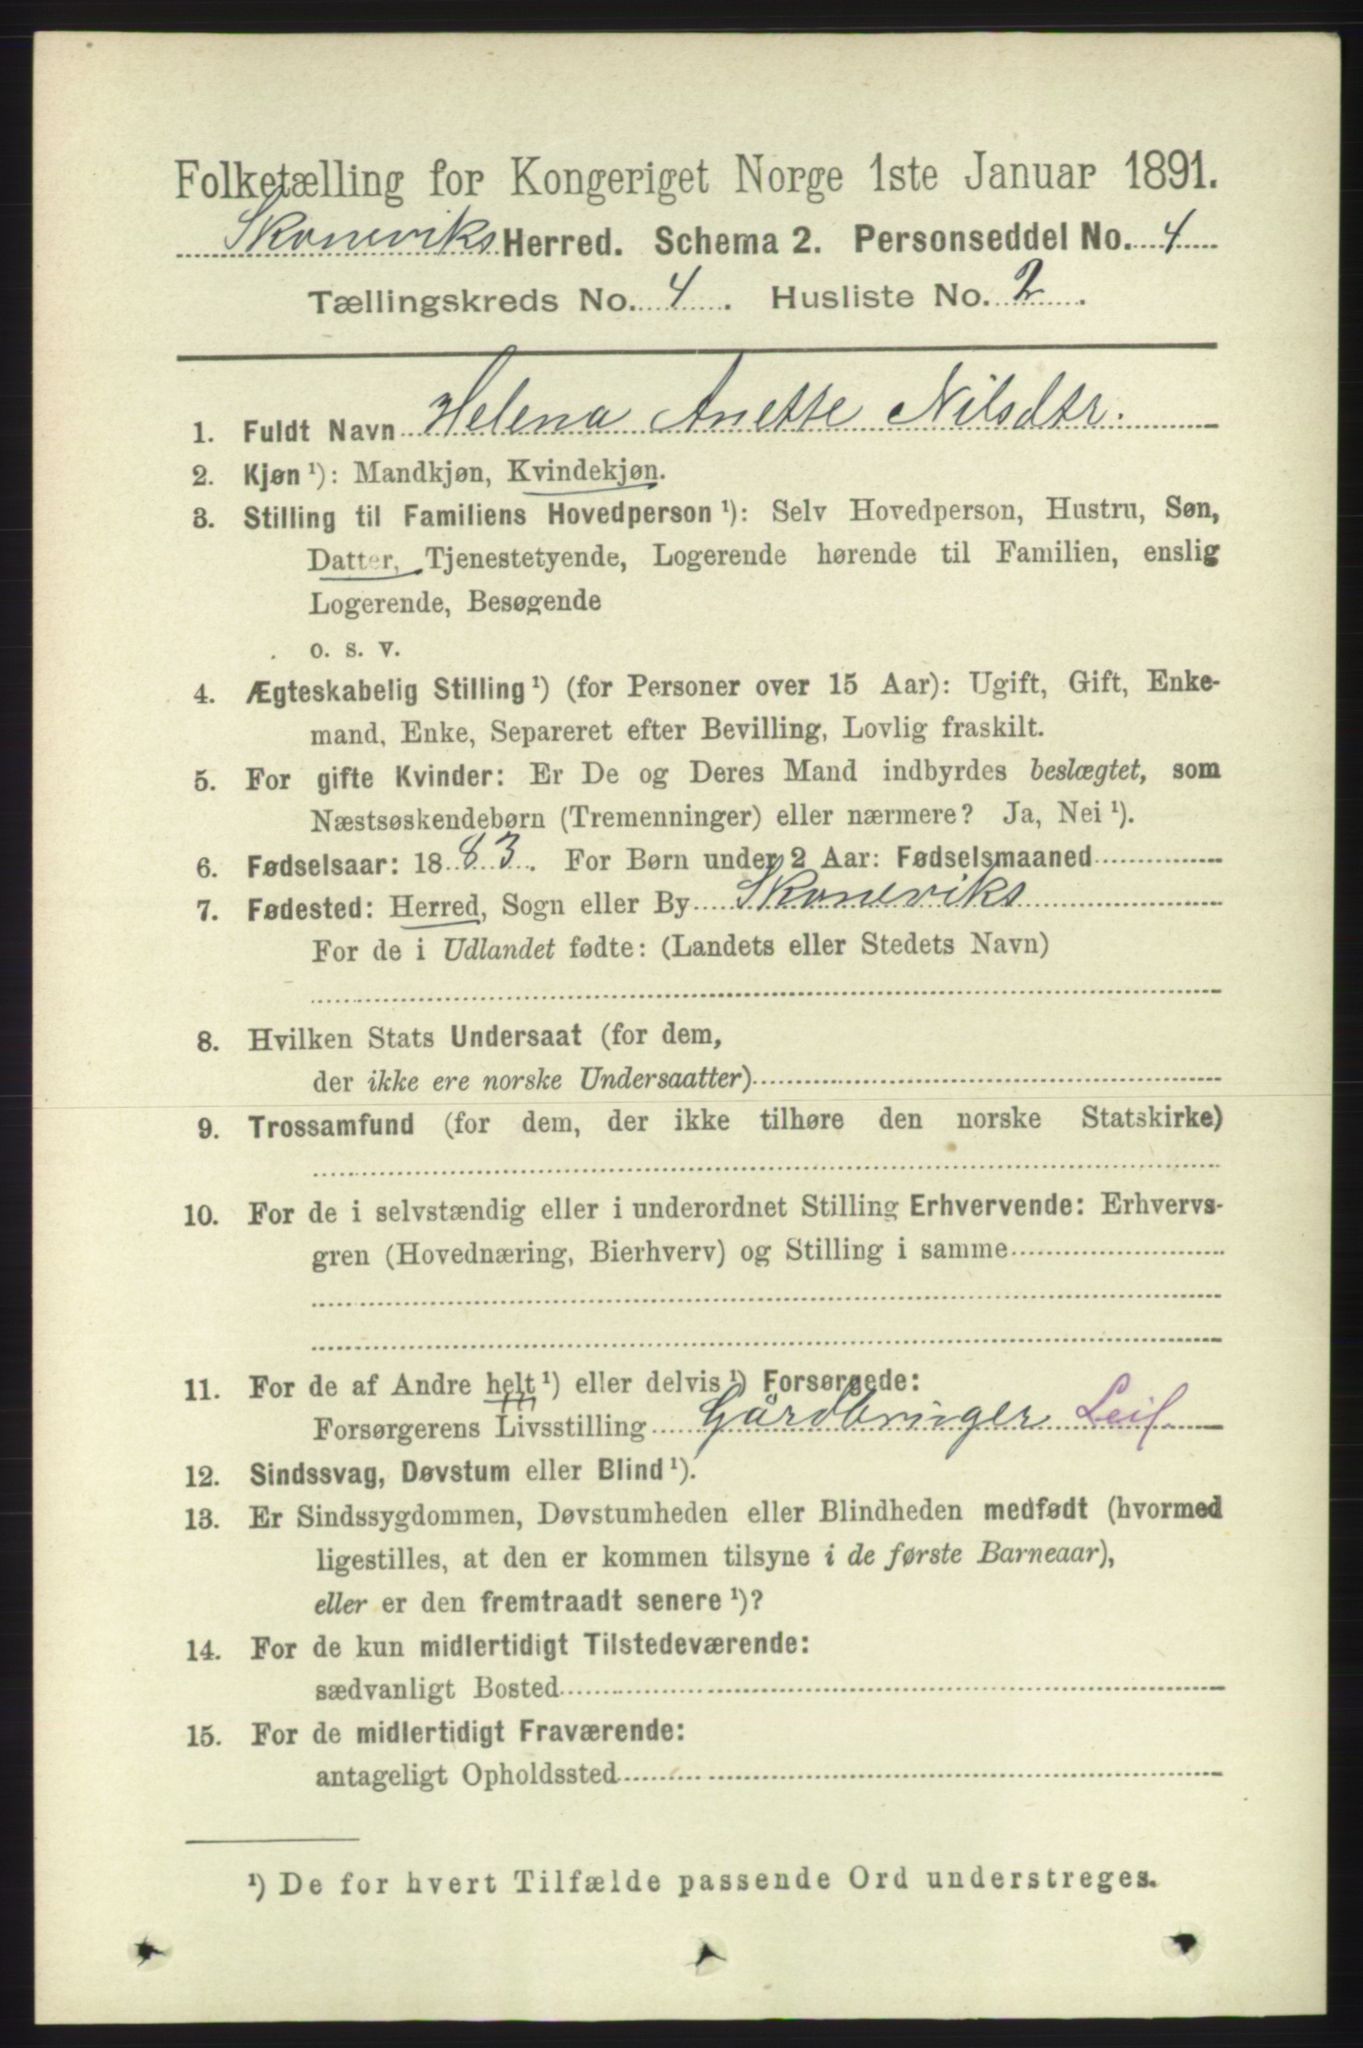 Folketælling for Kongeriget Norge 1ste Januar 1891.
Skoneviks Herred. Schema 2. Personseddel No. 4
Tællingskreds No. 4. Husliste No. 2.
1. Fuldt Navn Helena Anette Nilsdtr.
2. Kjøn ¹): Mandkjøn, Kvindekjøn.
3. Stilling til Familiens Hovedperson ¹): Selv Hovedperson, Hustru, Søn,
Datter, Tjenestetyende, Logerende hørende til Familien, enslig
Logerende, Besøgende
o. s. v.
4. Ægteskabelig Stilling ¹) (for Personer over 15 Aar): Ugift, Gift, Enke-
mand, Enke, Separeret efter Bevilling, Lovlig fraskilt.
5. For gifte Kvinder: Er De og Deres Mand indbyrdes beslægtet, som
Næstsøskendebørn (Tremenninger) eller nærmere? Ja, Nei ¹).
6. Fødselsaar: 1883. For Børn under 2 Aar: Fødselsmaaned
7. Fødested: Herred, Sogn eller By Skoneviks
For de i Udlandet fødte: (Landets eller Stedets Navn)
8. Hvilken Stats Undersaat (for dem,
der ikke ere norske Undersaatter)
9. Trossamfund (for dem, der ikke tilhøre den norske Statskirke)
10. For de i selvstændig eller i underordnet Stilling Erhvervende: Erhvervs-
gren (Hovednæring, Bierhverv) og Stilling i samme
11. For de af Andre helt ¹) eller delvis ¹) Forsørgede:
Forsørgerens Livsstilling Gårdbruger Leil.
12. Sindssvag, Døvstum eller Blind ¹).
13. Er Sindssygdommen, Døvstumheden eller Blindheden medfødt (hvormed
ligestilles, at den er kommen tilsyne i de første Barneaar),
eller er den fremtraadt senere ¹)?
14. For de kun midlertidigt Tilstedeværende:
sædvanligt Bosted
15. For de midlertidigt Fraværende:
antageligt Opholdssted
¹) De for hvert Tilfælde passende Ord understreges.